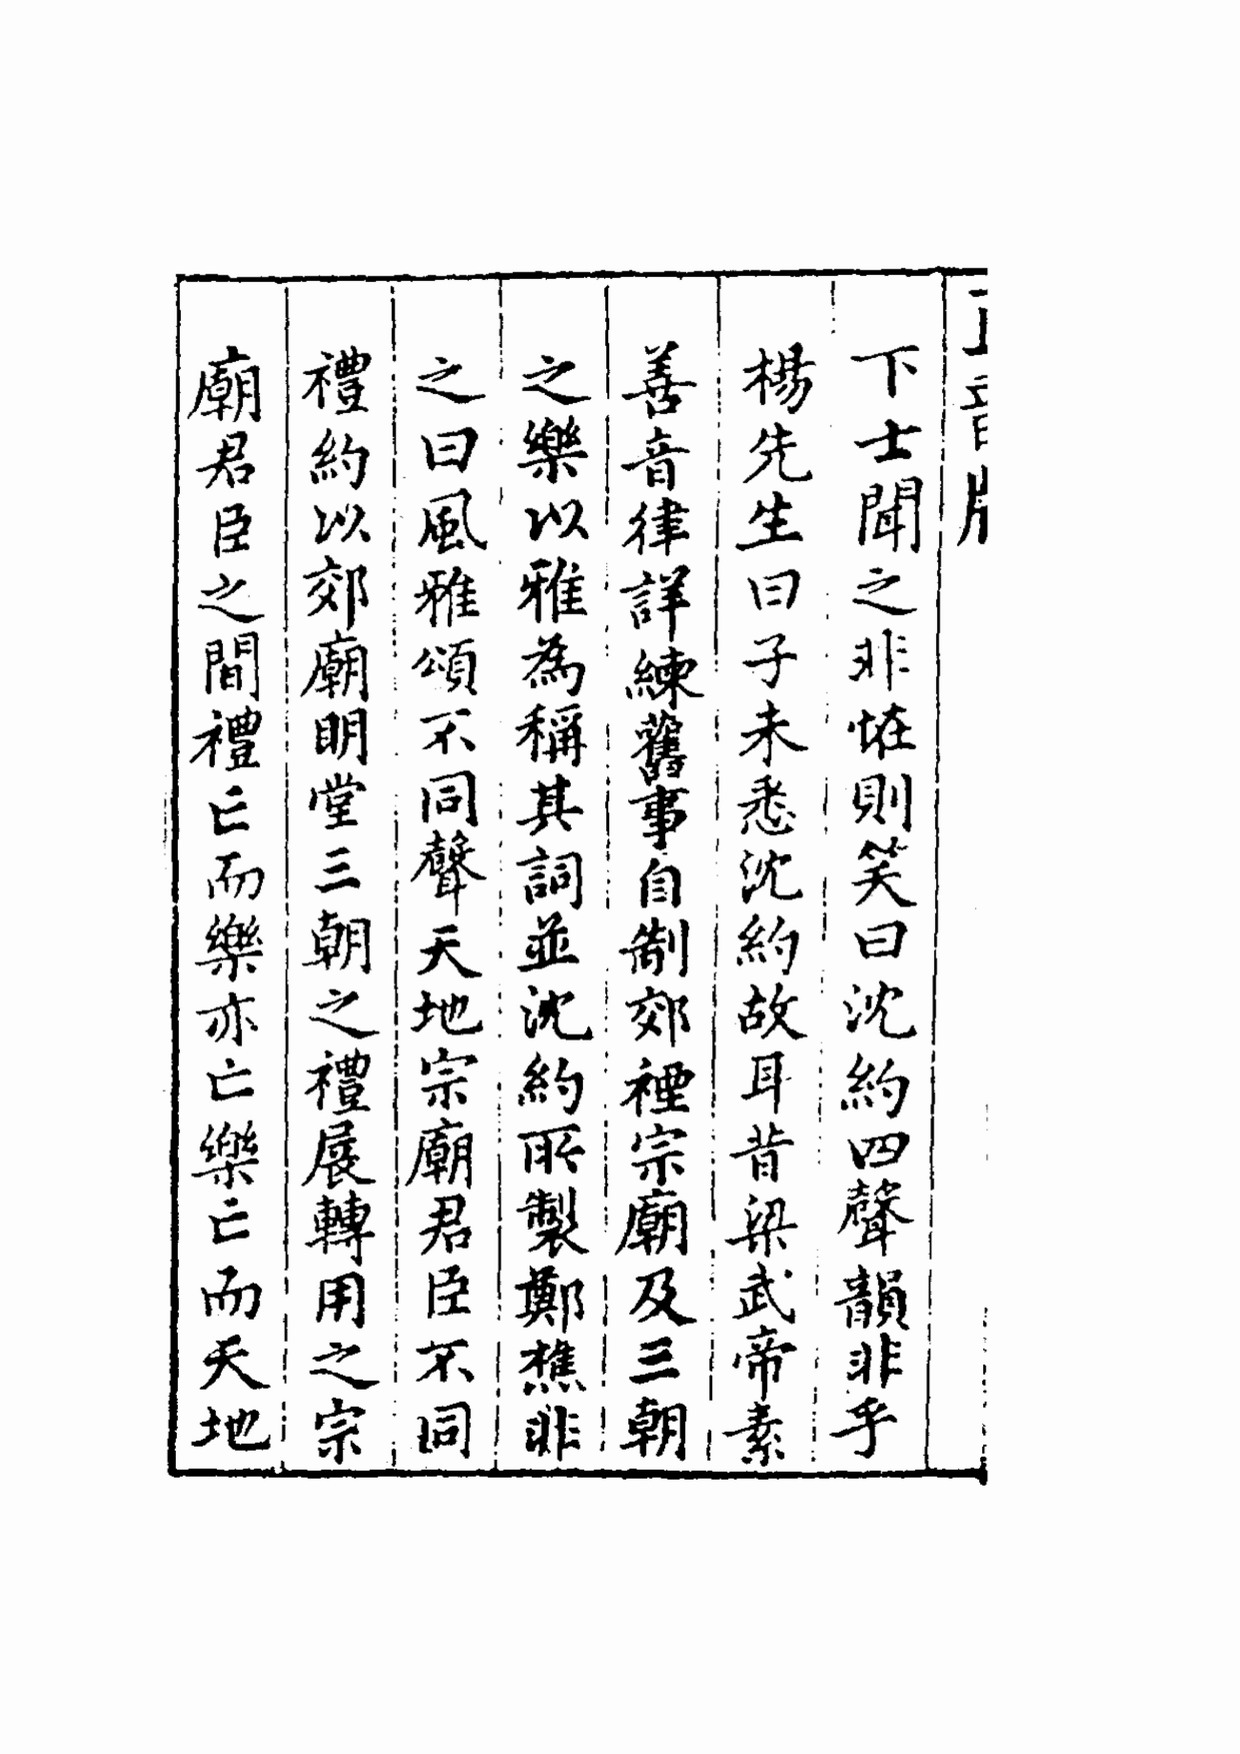 下士聞之非恠則笑曰沈約四聲韻非乎
楊先生曰子未悉沈約故耳昔梁武帝素
善音律詳練舊事自制郊禋宗廟及三朝
之樂以雅為稱其詞並沈約所製鄭樵非
之曰風雅頌不同聲天地宗廟君臣不同
禮約以郊廟明堂三朝之禮展轉用之宗
廟君臣之間禮亡而樂亦亡樂亡而天地